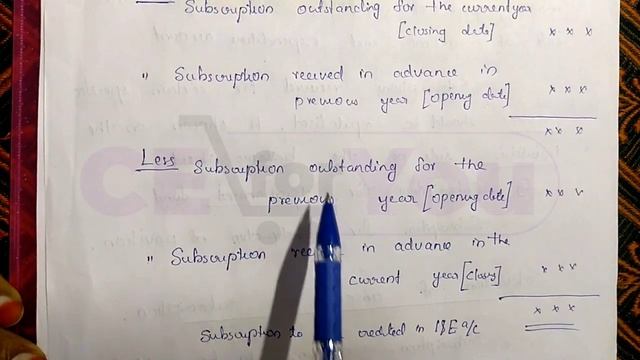 Subscription outstanding for the current year
[closing date] x x x
" Subscription received in advance in
previous year [opening date] x x x
x x x
Less Subscription outstanding for the
previous year [opening date] x x x
" Subscription in advance in the
current year [closing] x x x
x x x
Subscription to credited in I&E a/c
CE for You